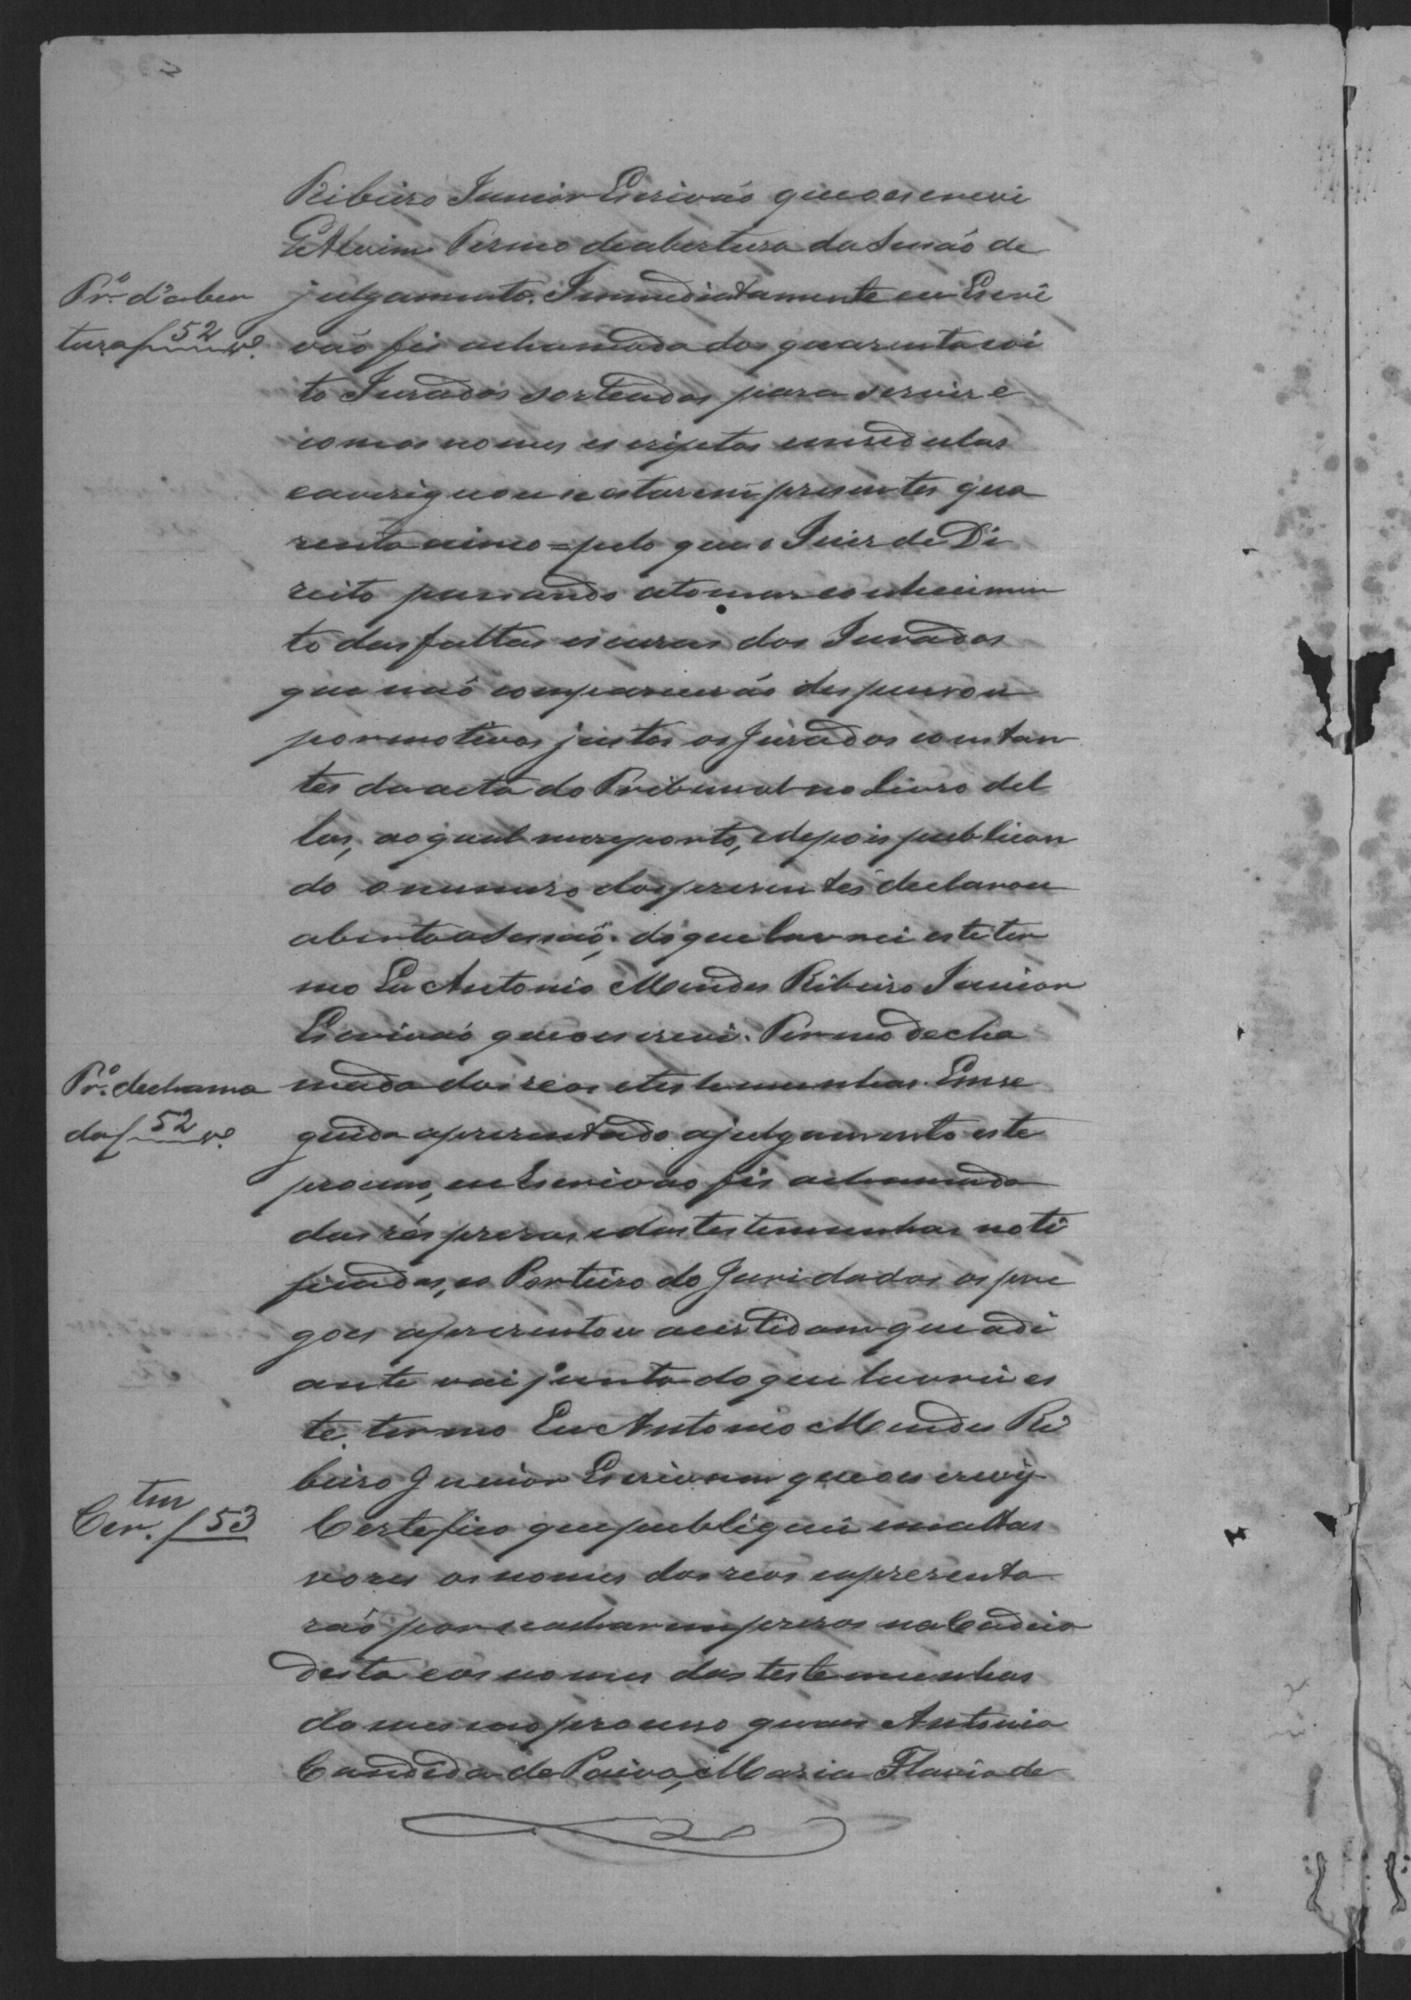 Ribeiro Junior Escrivaõ que o escrevi
Termo de abertura da Sessaõ de
Tr.º d'aber
julgamento. Immediatamente eu Escri
tura f 52 v.º
vaõ fis achamada dos quarenta e oi
to Jurados sorteados para servir e
com os nomes escriptos em sedulas
e averiguou se estarem presentes qua
renta e cinco = pelo que o Juis de Di
reito passando atomar conhecimen
to das faltas escuzas dos Jurados
que naõ comparecerás despensou
por motivos justos os Jurados constan
tes da acta do Tribunal no Livro del
las, ao qual me reporto, e depois publican
do o numero dos presentes declarou
aberta a Sessaõ. do que lavrei este ter
mo Eu Antonio Mendes Ribeiro Junior
Escrivaõ que o escrevi. Termo de cha
Tr.º de chama
mada dos reos e testemunhas. Em se
da f 52 v.º
guida apresentado ajulgamento este
processo, eu Escrivaõ fis achamada
dos rés prezos, e das testemunhas noti
ficadas, e o Porteiro do Juri dadas os pre
goes apresentou acertidam que adi
ante vai junta do que lavrei es
te termo Eu Antonio Mendes Ri
beiro Junior Escrivam que o escrevy
Cer.tm f 53
Certefico que publiquei em altas
vozes os nomes dos reos
por se acharem prezos na Cadeia
desta e os nomes das testemunhas
do mesmo processo Antonia
Candida de Paiva, Maria Flavia de